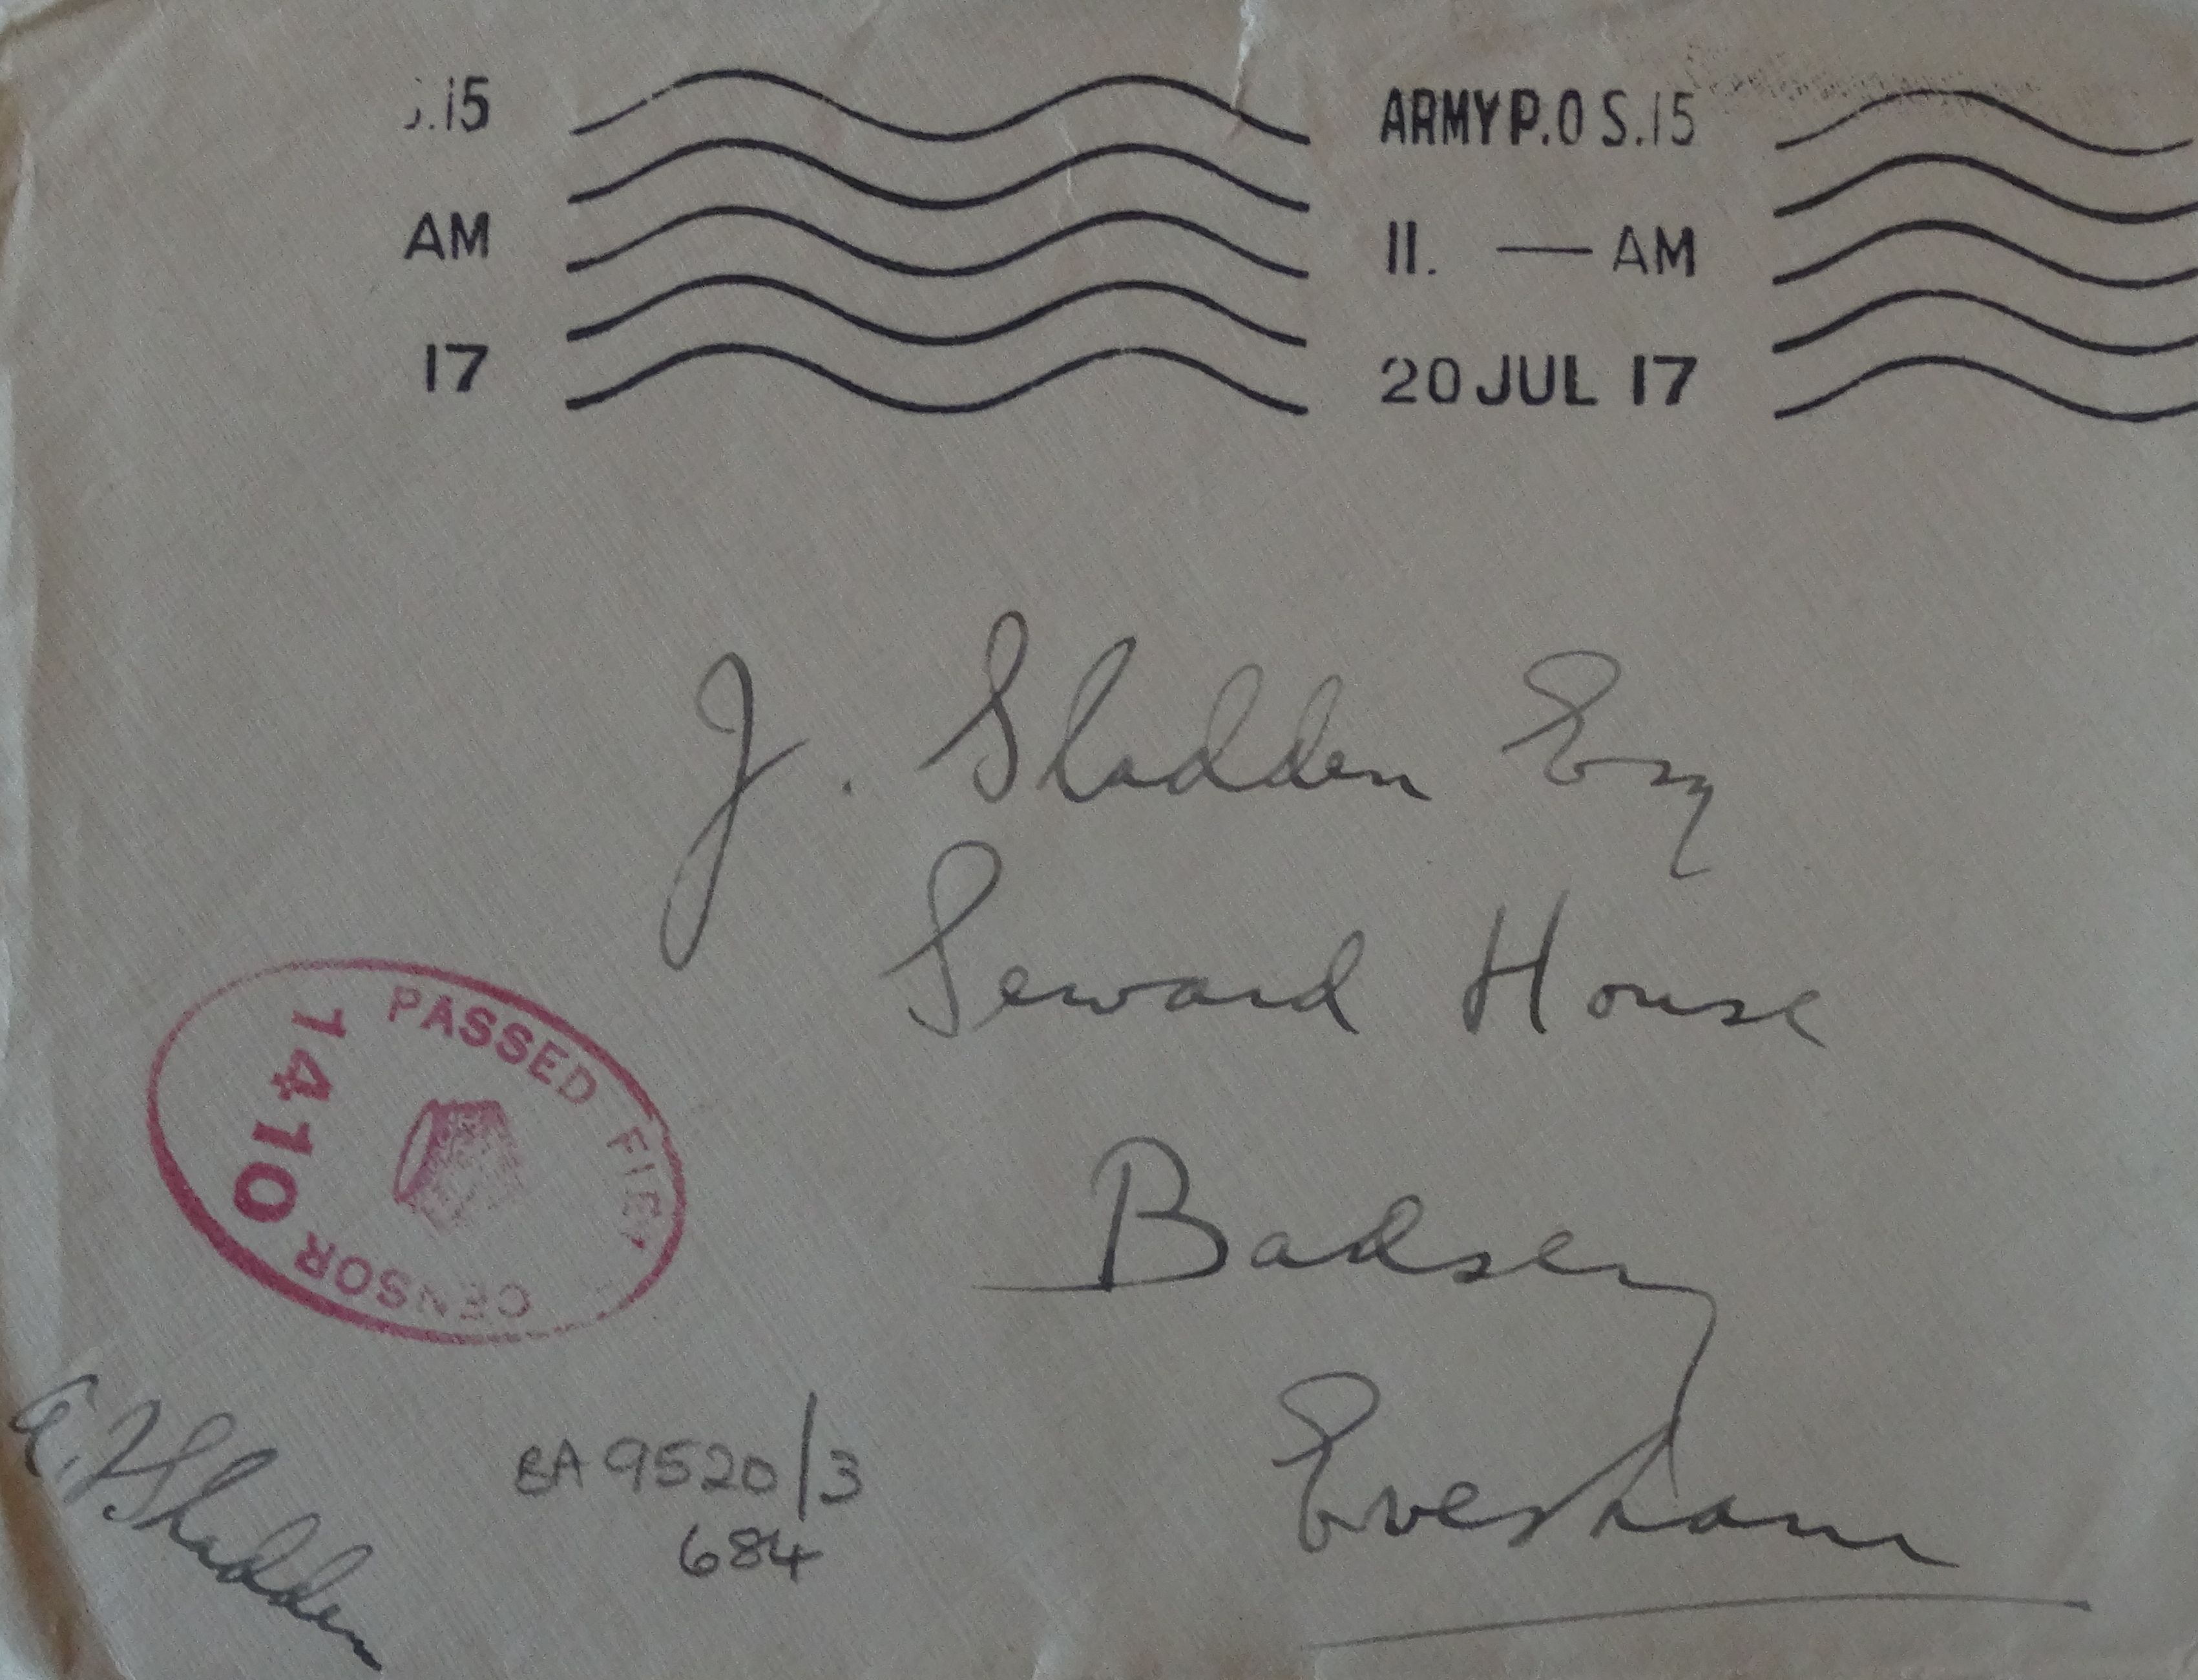 .15
AM
17
ARMY P.O S.15
11. — AM
20 JUL 17
J. Sladden Esq
Seward House
Badsey
Evesham
PASSED FIEL
CENSOR
1410
BA 9520/3
684
Sladden